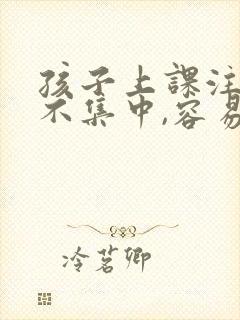 孩子上課注
不集中,容易
冷茗卿